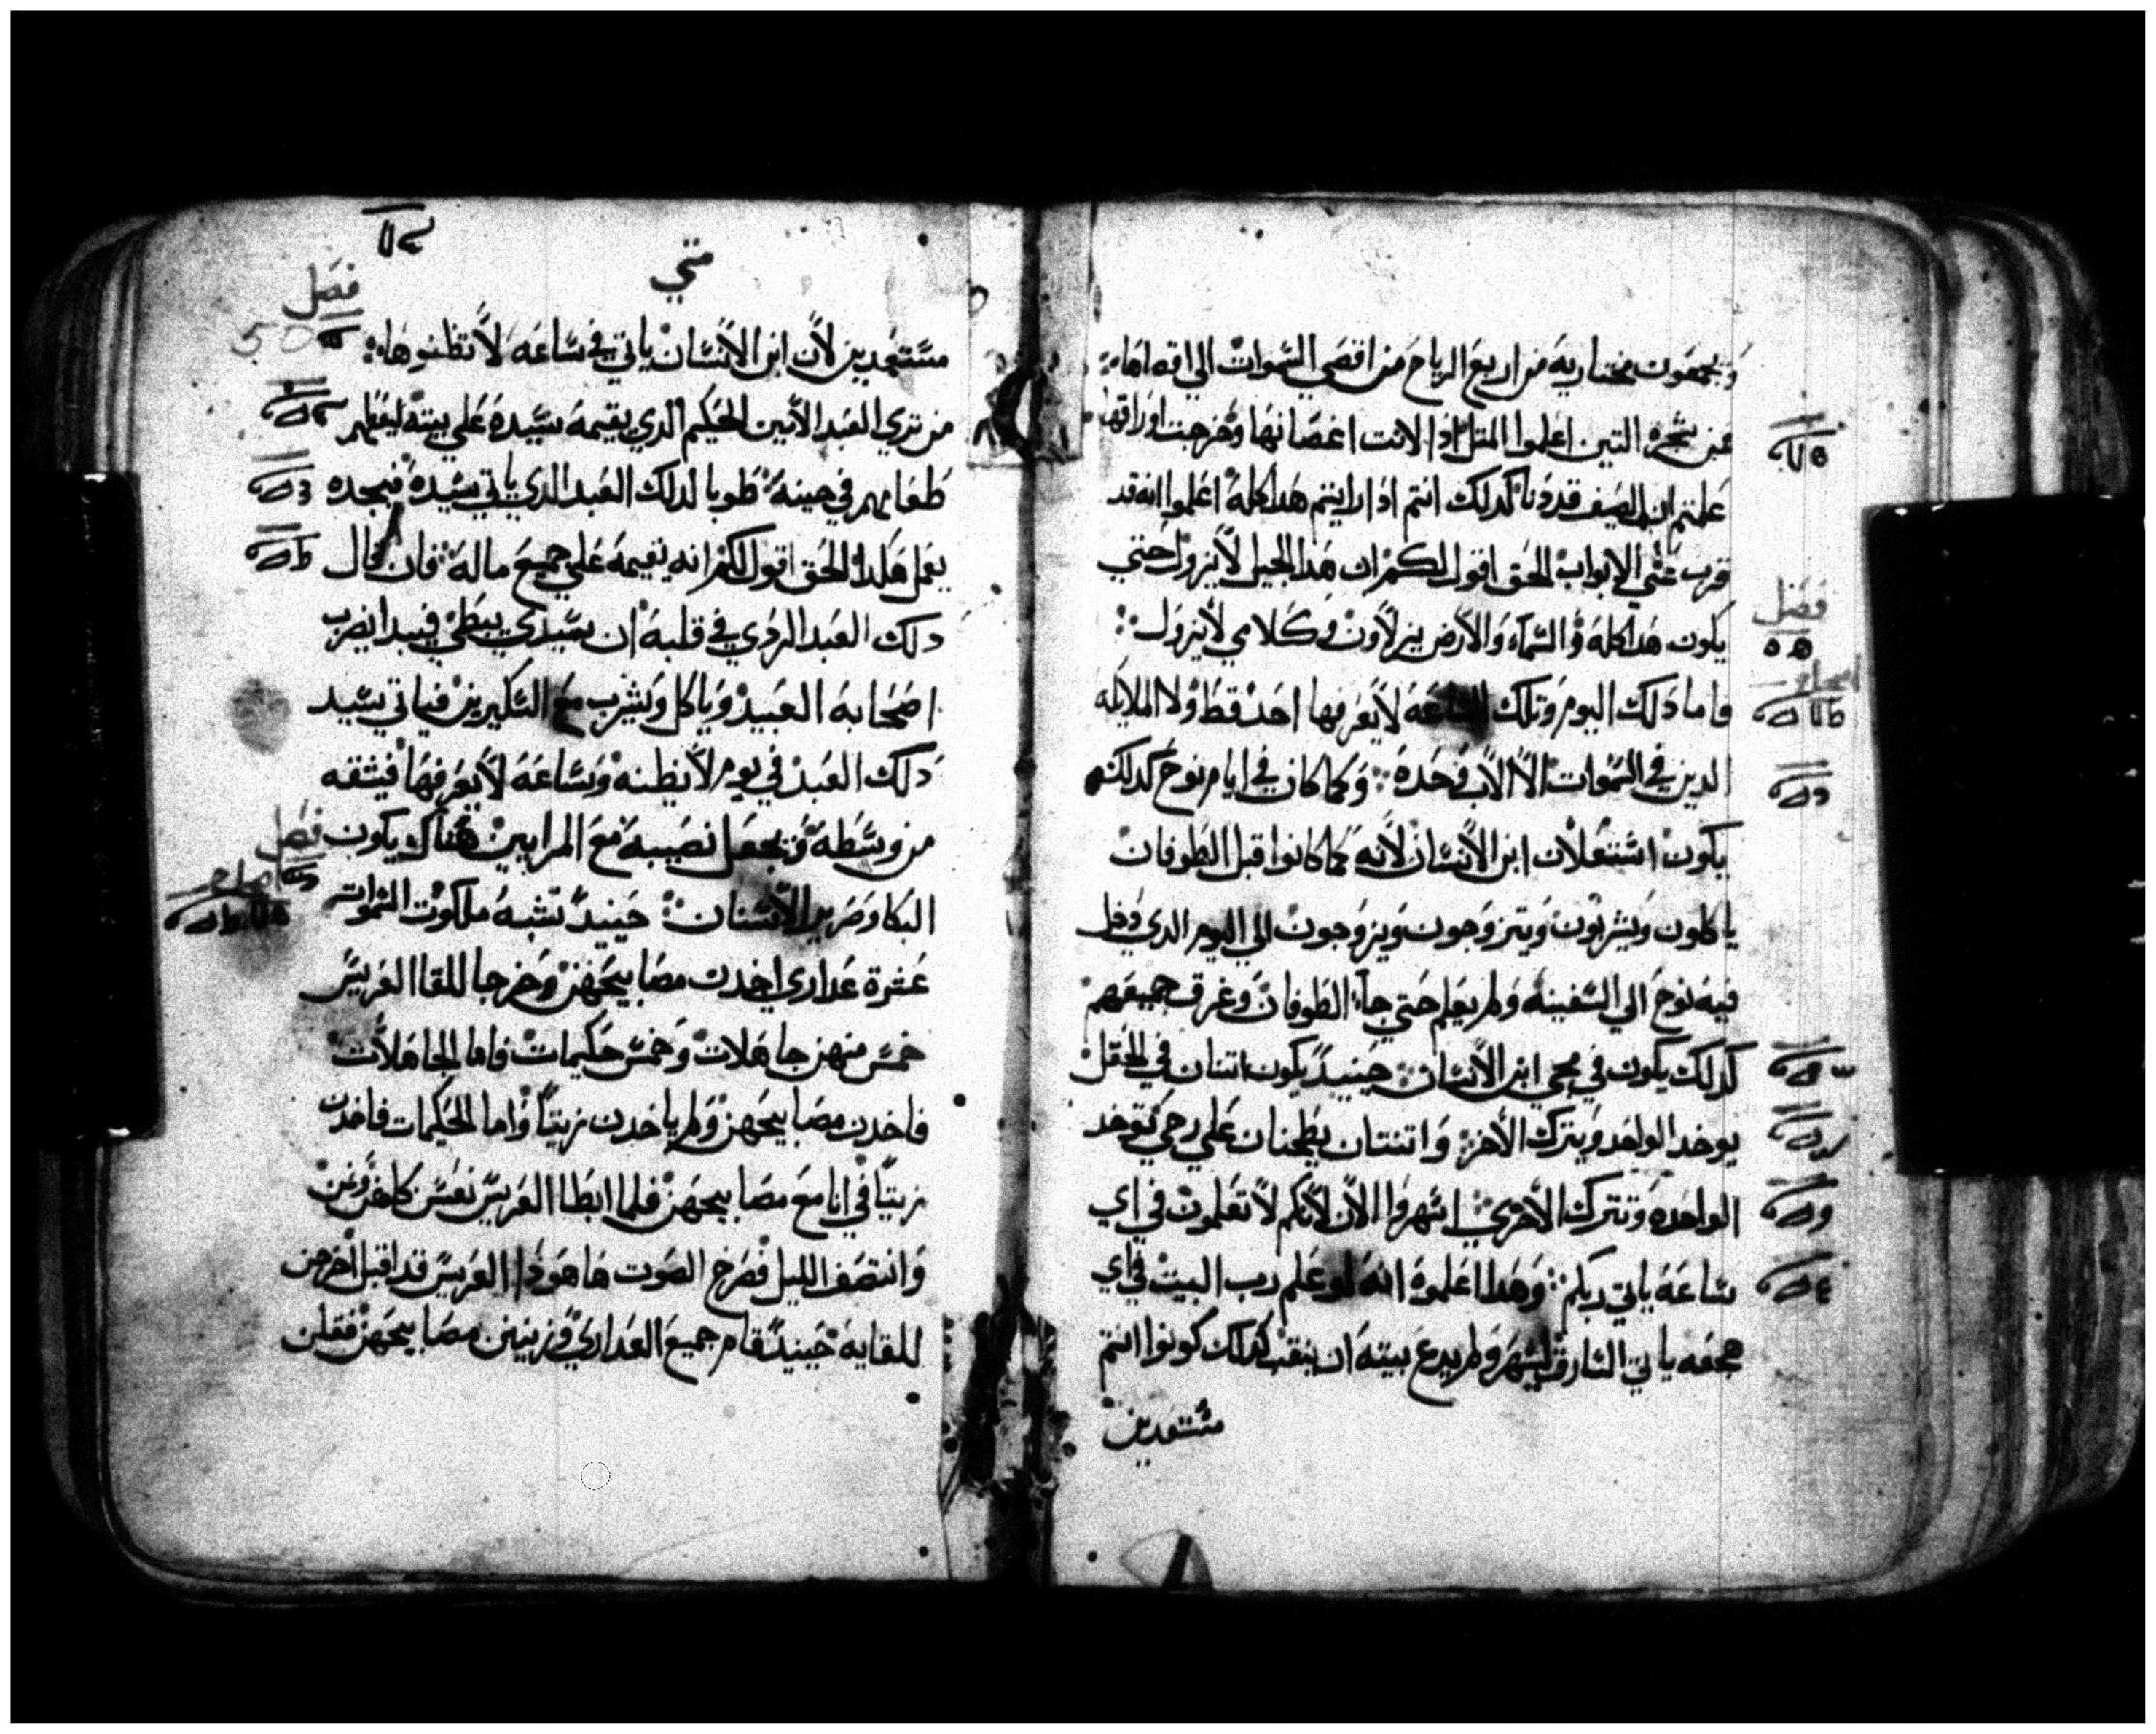 ويجمعون مختاريه من اربع الرياح من اقصي السموات الي اقصاها
فمن شجره التين اعلموا المثل اذا لانت اغصانها وخرجت اوراقها
علمتم ان الصيف قد دنا كدلك انتم ادا رايتم هدا كله اعلموا انه قد
قرب علي الابواب الحق اقول لكم ان هدا الجيل لا يزول حتي
يكون هدا كله والسماء والارض يزلاون وكلامي لا يزول
فصل
فاما دلك اليوم وتلك الساعه لا يعرفها احد قط ولا الملايكه
الدين في السموات الا الاب وحده وكما كان في ايام نوح كدلك
يكون استعلان ابن الانسان لانه كما كانوا قبل الطوفان
ياكلون ويشربون ويتزوجون ويزوجون الي اليوم الدي دخل
فيه نوح الي السفينه ولم يعلم حتي جاء الطوفان وغرق جميعهم
كدلك يكون في مجي ابن الانسان حينيد يكون اتنان في الحقل
يوخد الواحد ويترك الاخر واتنتان يطحنان علي رحي توخد
الواحده وتترك الاخري اسهروا الان لانكم لا تعلمون في اي
ساعه ياتي ربكم وهدا اعلموه انه لو علم رب البيت في اي
هجعه ياتي السارق ليسهر ولم يدع بيته ان ينقب كدلك كونوا انتم
مستعدين
متي
فصل
50
مستعدين لان ابن الانسان ياتي في ساعه لا تظنوها
من تري العبد الامين الحكيم الدي يقيمه سيده علي بيته ليعطيهم
طعامهم في حينه طوبا لدلك العبد الدي ياتي سيده فيجده
يعمل هكدا الحق اقول لكم انه يقيمه علي جميع ماله فان قال
دلك العبد الردي في قلبه ان سيدي يبطي فيبدا يضرب
اصحابه العبيد وياكل ويشرب مع السكيرين فياتي سيد
دلك العبد في يوم لا يظنه وساعه لا يعرفها فيشقه
من وسطه ويجعل نصيبه مع المرايين هناك يكون
فصل
البكا وصرير الاسنان حينيد تشبه ملكوت السموات
عشرة عداري اخدن مصابيحهن وخرجا للقا العريس
خمس منهن جاهلات وخمس حكيمات فاما الجاهلات
فاخدن مصابيحهن ولم ياخدن زيتا واما الحكيمات فاخدن
زيتا في انا مع مصابيحهن فلما ابطا العريس نعسن كلهن
وانتصف الليل فصرخ الصوت هاهوذا العريس قد اقبل اخرجن
للقايه حينيد قام جميع العداري وزينين مصابيحهن فقلن